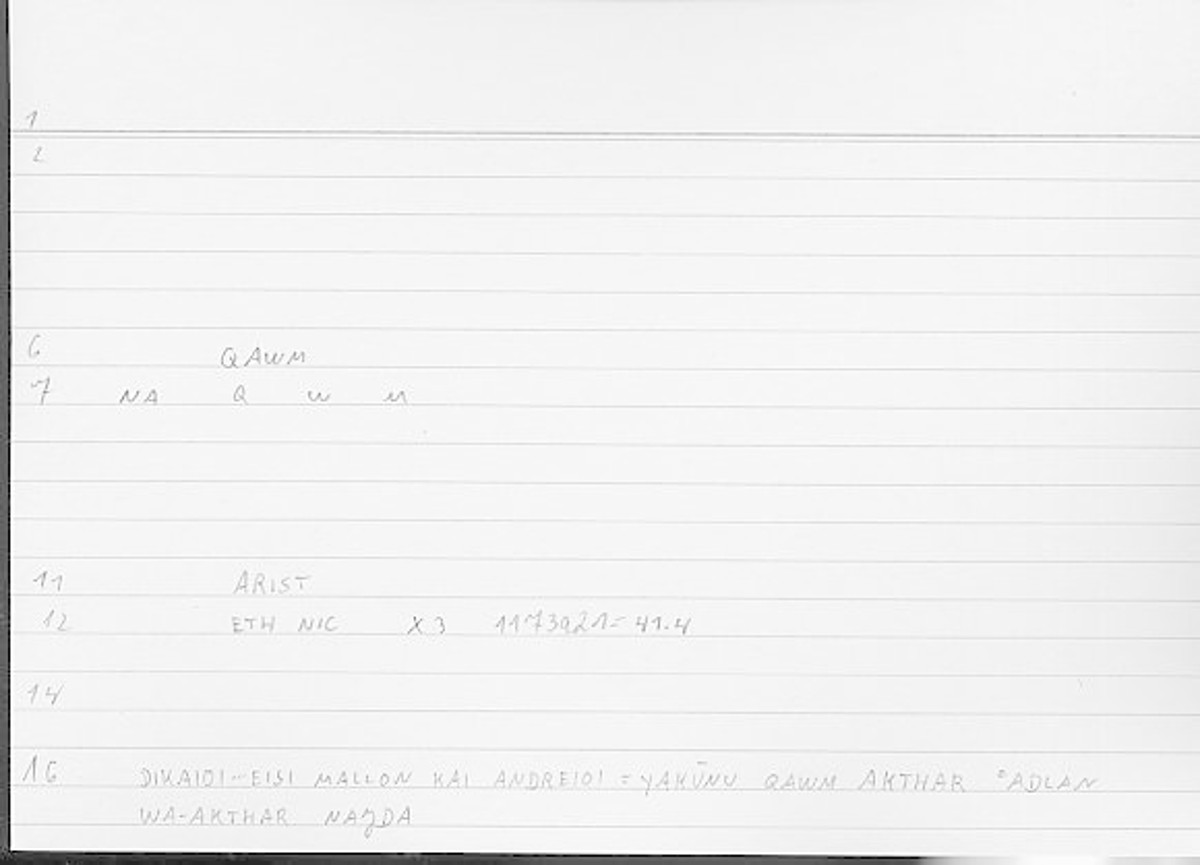 1
2
6 QAWM
7 NA Q W M
11 ARIST
12 ETH NIC X 3 1173a21=41.4
14
16 DIKAIOI--EISI MALLON KAI ANDREIOI = YAKŪNU QAWM AKTHAR ʿADLAN
WA-AKTHAR NAJDA